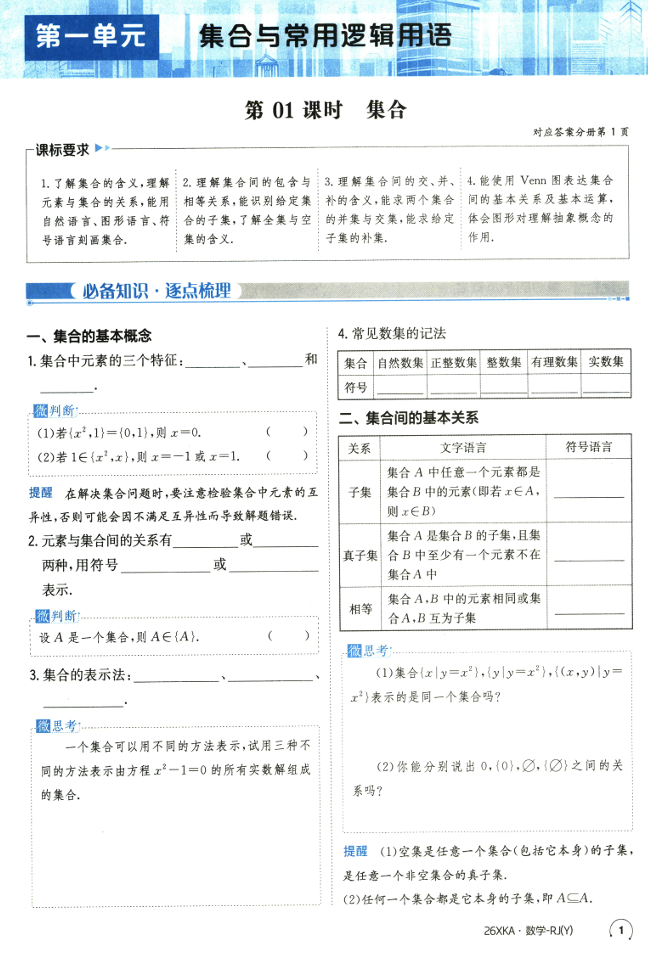 第一单元 集合与常用逻辑用语
第 01 课时 集合
对应答案分册第 1 页
课标要求
1. 了解集合的含义,理解
元素与集合的关系,能用
自然语言、图形语言、符
号语言刻画集合.
2. 理解集合间的包含与
相等关系,能识别给定集
合的子集,了解全集与空
集的含义.
3. 理解集合间的交、并、
补的含义,能求两个集合
的并集与交集,能求给定
子集的补集.
4. 能使用 Venn 图表达集合
间的基本关系及基本运算,
体会图形对理解抽象概念的
作用.
必备知识·逐点梳理
一、集合的基本概念
1. 集合中元素的三个特征:________、________和
________.
微判断
(1)若{x²,1}={0,1},则 x=0. ( )
(2)若 1∈{x²,x},则 x=-1 或 x=1. ( )
提醒 在解决集合问题时,要注意检验集合中元素的互
异性,否则可能会因不满足互异性而导致解题错误.
2. 元素与集合间的关系有________或________
两种,用符号________或________
表示.
微判断
设 A 是一个集合,则 A∈{A}. ( )
3. 集合的表示法:________、________、
________.
微思考
一个集合可以用不同的方法表示,试用三种不
同的方法表示由方程 x²-1=0 的所有实数解组成
的集合.
4. 常见数集的记法
集合 自然数集 正整数集 整数集 有理数集 实数集
符号 ________ ________ ________ ________ ________
二、集合间的基本关系
关系 文字语言 符号语言
子集 集合 A 中任意一个元素都是
集合 B 中的元素(即若 x∈A,
则 x∈B) ________
真子集 集合 A 是集合 B 的子集,且集
合 B 中至少有一个元素不在
集合 A 中 ________
相等 集合 A,B 中的元素相同或集
合 A,B 互为子集 ________
微思考
(1)集合{x|y=x²},{y|y=x²},{(x,y)|y=
x²}表示的是同一个集合吗?
(2)你能分别说出 0,{0},∅,{∅}之间的关
系吗?
提醒 (1)空集是任意一个集合(包括它本身)的子集,
是任意一个非空集合的真子集.
(2)任何一个集合都是它本身的子集,即 A⊆A.
26XKA·数学-RJ(Y) 1